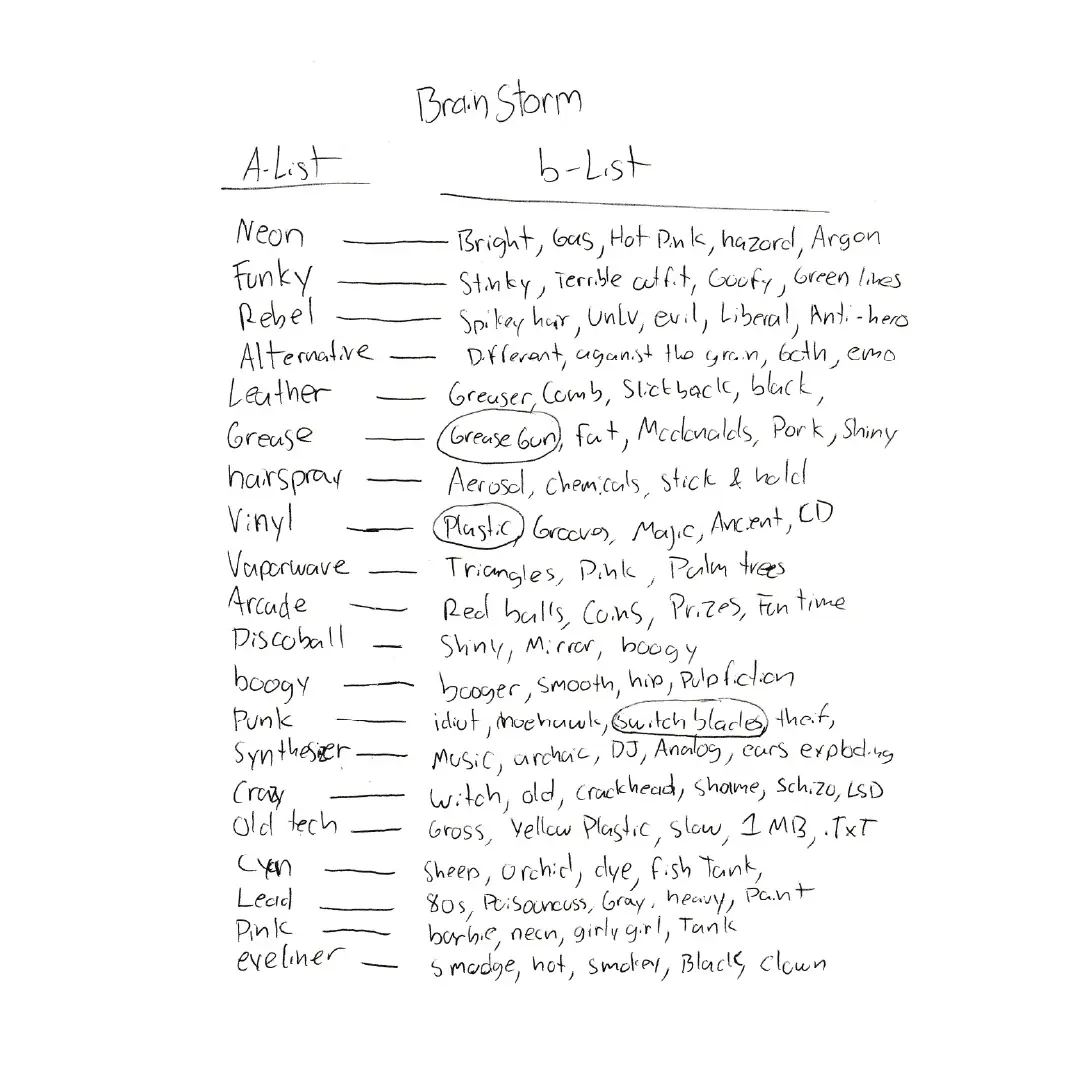 Brain Storm
A-List b-List
Neon — Bright, Gas, Hot Pink, hazord, Argon
Funky — Stinky, Terrible outfit, Goofy, Green lines
Rebel — Spikey hair, UNLV, evil, Liberal, Anti-hero
Alternative — Different, aganist the grain, Goth, emo
Leather — Greaser, Comb, Slickback, black,
Grease — Grease Gun, fat, Mcdonalds, Pork, Shiny
hairspray — Aerosol, chemicals, stick & hold
Vinyl — Plastic, Grooves, Magic, Ancient, CD
Vaporwave — Triangles, Pink, Palm trees
Arcade — Red balls, Coins, Prizes, Fun time
Discoball — Shiny, Mirror, boogy
boogy — booger, smooth, hip, Pulp fiction
Punk — idiot, moehawk, switch blades, theif,
Synthesizer — Music, archaic, DJ, Analog, ears exploding
Crazy — witch, old, crackhead, shame, Schizo, LSD
Old tech — Gross, Yellow Plastic, slow, 1 MB, .TxT
Cyan — Sheep, orchid, dye, fish Tank,
Lead — 80s, Poisonouss, Gray, heavy, Paint
Pink — barbie, neon, girly girl, Tank
eyeliner — smadge, hot, smokey, Black, clown